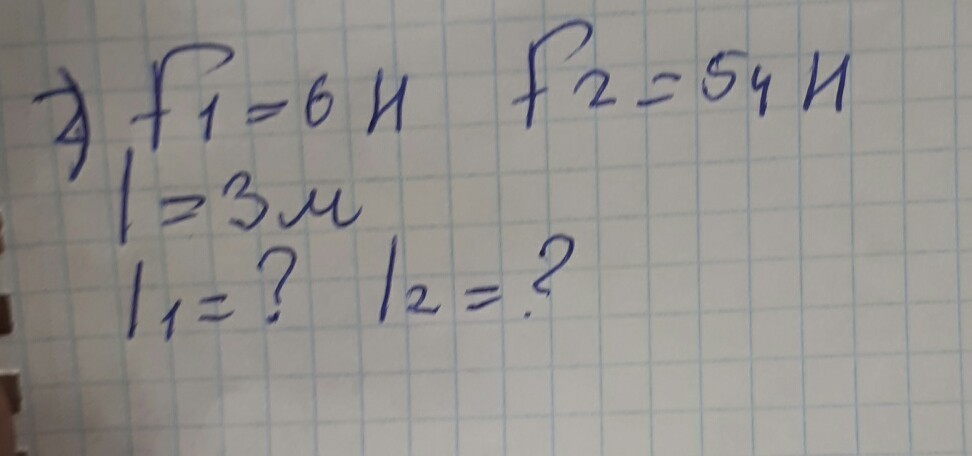 2) F1 = 6 Н F2 = 54 Н
l = 3 м
l1 = ? l2 = ?